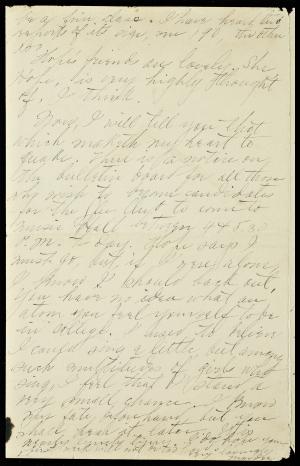 be a fine class. I have heard two
reports of its size, one 190, the other
Hope's friends are lovely. She
Hope, is very highly thought
of, I think.
Now, I will tell you that
which maketh my heart to
quake. There is a notice on
the bulletin board for all those
who wish to become candidates
for the Glee Club to come to
Music Hall between 4 & 5.30
P.M. to-day. Hope says I
must go, but if I were alone,
I know I should back out.
You have no idea what an
atom you feel yourself to be
in college. I used to believe
I could sing a little, but among
such multitudes of girls who
sing, I feel that I stand a
very small chance. I know
my fate beforehand, but you
shall hear it later.